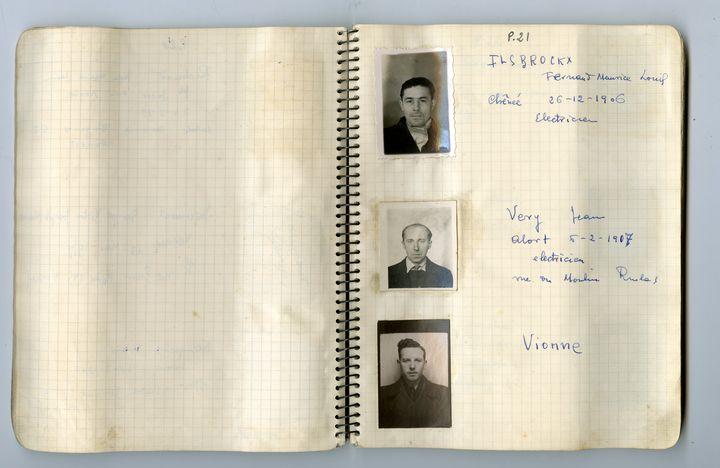 P.21
ILSBROCKX
Fernand Maurice Louis
Chênée 26-12-1906
Electricien
Very Jean
5-2-1907
electricien
rue du Moulin
Vionne